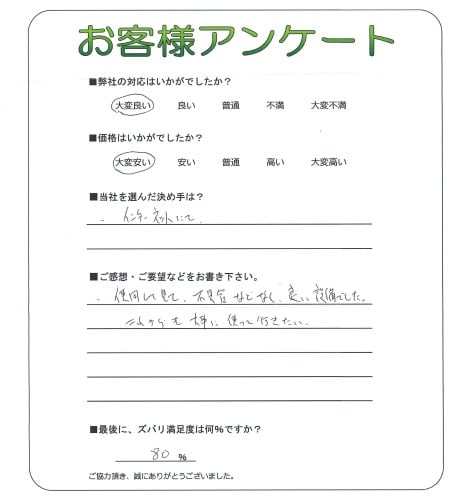 お客様アンケート
■弊社の対応はいかがでしたか？
大変良い 良い 普通 不満 大変不満
■価格はいかがでしたか？
大変安い 安い 普通 高い 大変高い
■当社を選んだ決め手は？
・ インターネットにて。
■ご感想・ご要望などをお書き下さい。
・使用して見て、不具合などなく、良い設備でした。
これからも大事に使って行きたい。
■最後に、ズバリ満足度は何%ですか？
80 %
ご協力頂き、誠にありがとうございました。